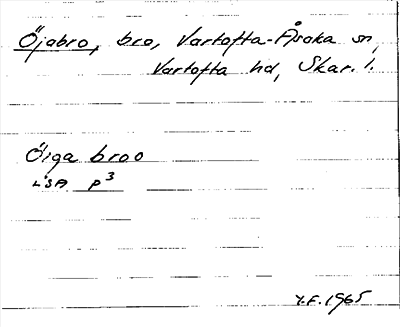 Öjabro, bro, Vartofta-Åsaka sn,
Vartofta hd, Skar. l.
Öiga broo
LSA p³
Y.F. 1965